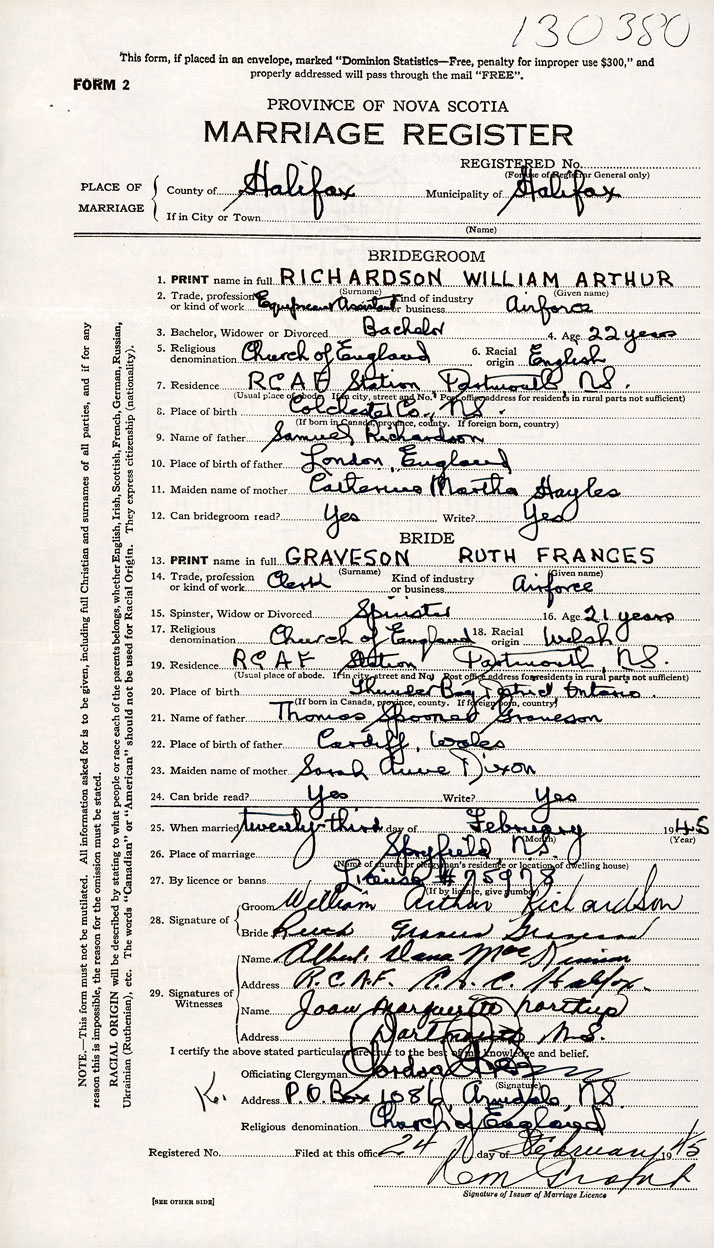 130380
This form, if placed in an envelope, marked "Dominion Statistics—Free, penalty for improper use $300," and
properly addressed will pass through the mail "FREE".
FORM 2
PROVINCE OF NOVA SCOTIA
MARRIAGE REGISTER
REGISTERED No.
(For use of Registrar General only)
PLACE OF MARRIAGE
County of Halifax Municipality of Halifax
If in City or Town
(Name)
BRIDEGROOM
1. PRINT name in full RICHARDSON WILLIAM ARTHUR
(Surname) (Given name)
2. Trade, profession or kind of work Equipment Assistant Kind of industry or business Airforce
3. Bachelor, Widower or Divorced Bachelor 4. Age 22 years
5. Religious denomination Church of England 6. Racial origin English
7. Residence R C A F Station Dartmouth, N.S.
(Usual place of abode. If in city, street and No. Post office address for residents in rural parts not sufficient)
8. Place of birth Colchester Co., N.S.
(If born in Canada, province, county. If foreign born, country)
9. Name of father Samuel Richardson
10. Place of birth of father London, England
11. Maiden name of mother Catherine Martha Hayles
12. Can bridegroom read? Yes Write? Yes
BRIDE
13. PRINT name in full GRAVESON RUTH FRANCES
(Surname) (Given name)
14. Trade, profession or kind of work Clerk Kind of industry or business Airforce
15. Spinster, Widow or Divorced Spinster 16. Age 21 years
17. Religious denomination Church of England 18. Racial origin Welsh
19. Residence R C A F Station Dartmouth, N.S.
(Usual place of abode. If in city, street and No. Post office address for residents in rural parts not sufficient)
20. Place of birth Thunder Bay District Ontario.
(If born in Canada, province, county. If foreign born, country)
21. Name of father Thomas Spooner Graveson
22. Place of birth of father Cardiff, Wales
23. Maiden name of mother Sarah Anne Dixon
24. Can bride read? Yes Write? Yes
25. When married twenty-third day of February 1945
(Month) (Year)
26. Place of marriage Spryfield, N.S.
(Name of church or clergyman's residence or location of dwelling house)
27. By licence or banns License # 75978
(If by licence, give number)
28. Signature of
Groom William Arthur Richardson
Bride Ruth Frances Graveson
29. Signatures of Witnesses
Name Albert Dana Mac
Address R.C.A.F. Halifax.
Name Joan Northup
Address Dartmouth N.S.
I certify the above stated particulars are true to the best of my knowledge and belief.
Officiating Clergyman
(Signature)
K. Address P.O. Box 1086, Armdale, N.S.
Religious denomination Church of England
Registered No. Filed at this office 24 day of February 1945
Signature of Issuer of Marriage Licence
[SEE OTHER SIDE]
NOTE.—This form must not be mutilated. All information asked for is to be given, including full Christian and surnames of all parties, and if for any
reason this is impossible, the reason for the omission must be stated.
RACIAL ORIGIN will be described by stating to what people or race each of the parents belongs, whether English, Irish, Scottish, French, German, Russian,
Ukrainian (Ruthenian), etc. The words "Canadian" or "American" should not be used for Racial Origin. They express citizenship (nationality).